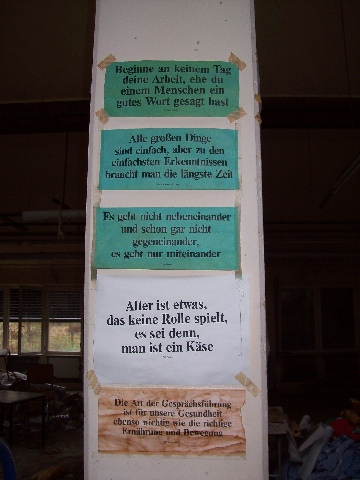 Beginne an keinem Tag
deine Arbeit, ehe du
einem Menschen ein
gutes Wort gesagt hast
Alle großen Dinge
sind einfach, aber zu den
einfachsten Erkenntnissen
braucht man die längste Zeit
Es geht nicht nebeneinander
und schon gar nicht
gegeneinander,
es geht nur miteinander
Alter ist etwas,
das keine Rolle spielt,
es sei denn,
man ist ein Käse
Die Art der Gesprächsführung
ist für unsere Gesundheit
ebenso wichtig wie die richtige
Ernährung und Bewegung